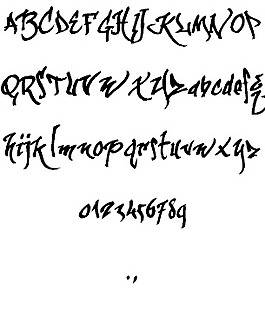 ABCDEFGHIJKLMNOP
QRSTUVWXYZabcdefg
hijklmnopqrstuvwxyz
0123456789
.,